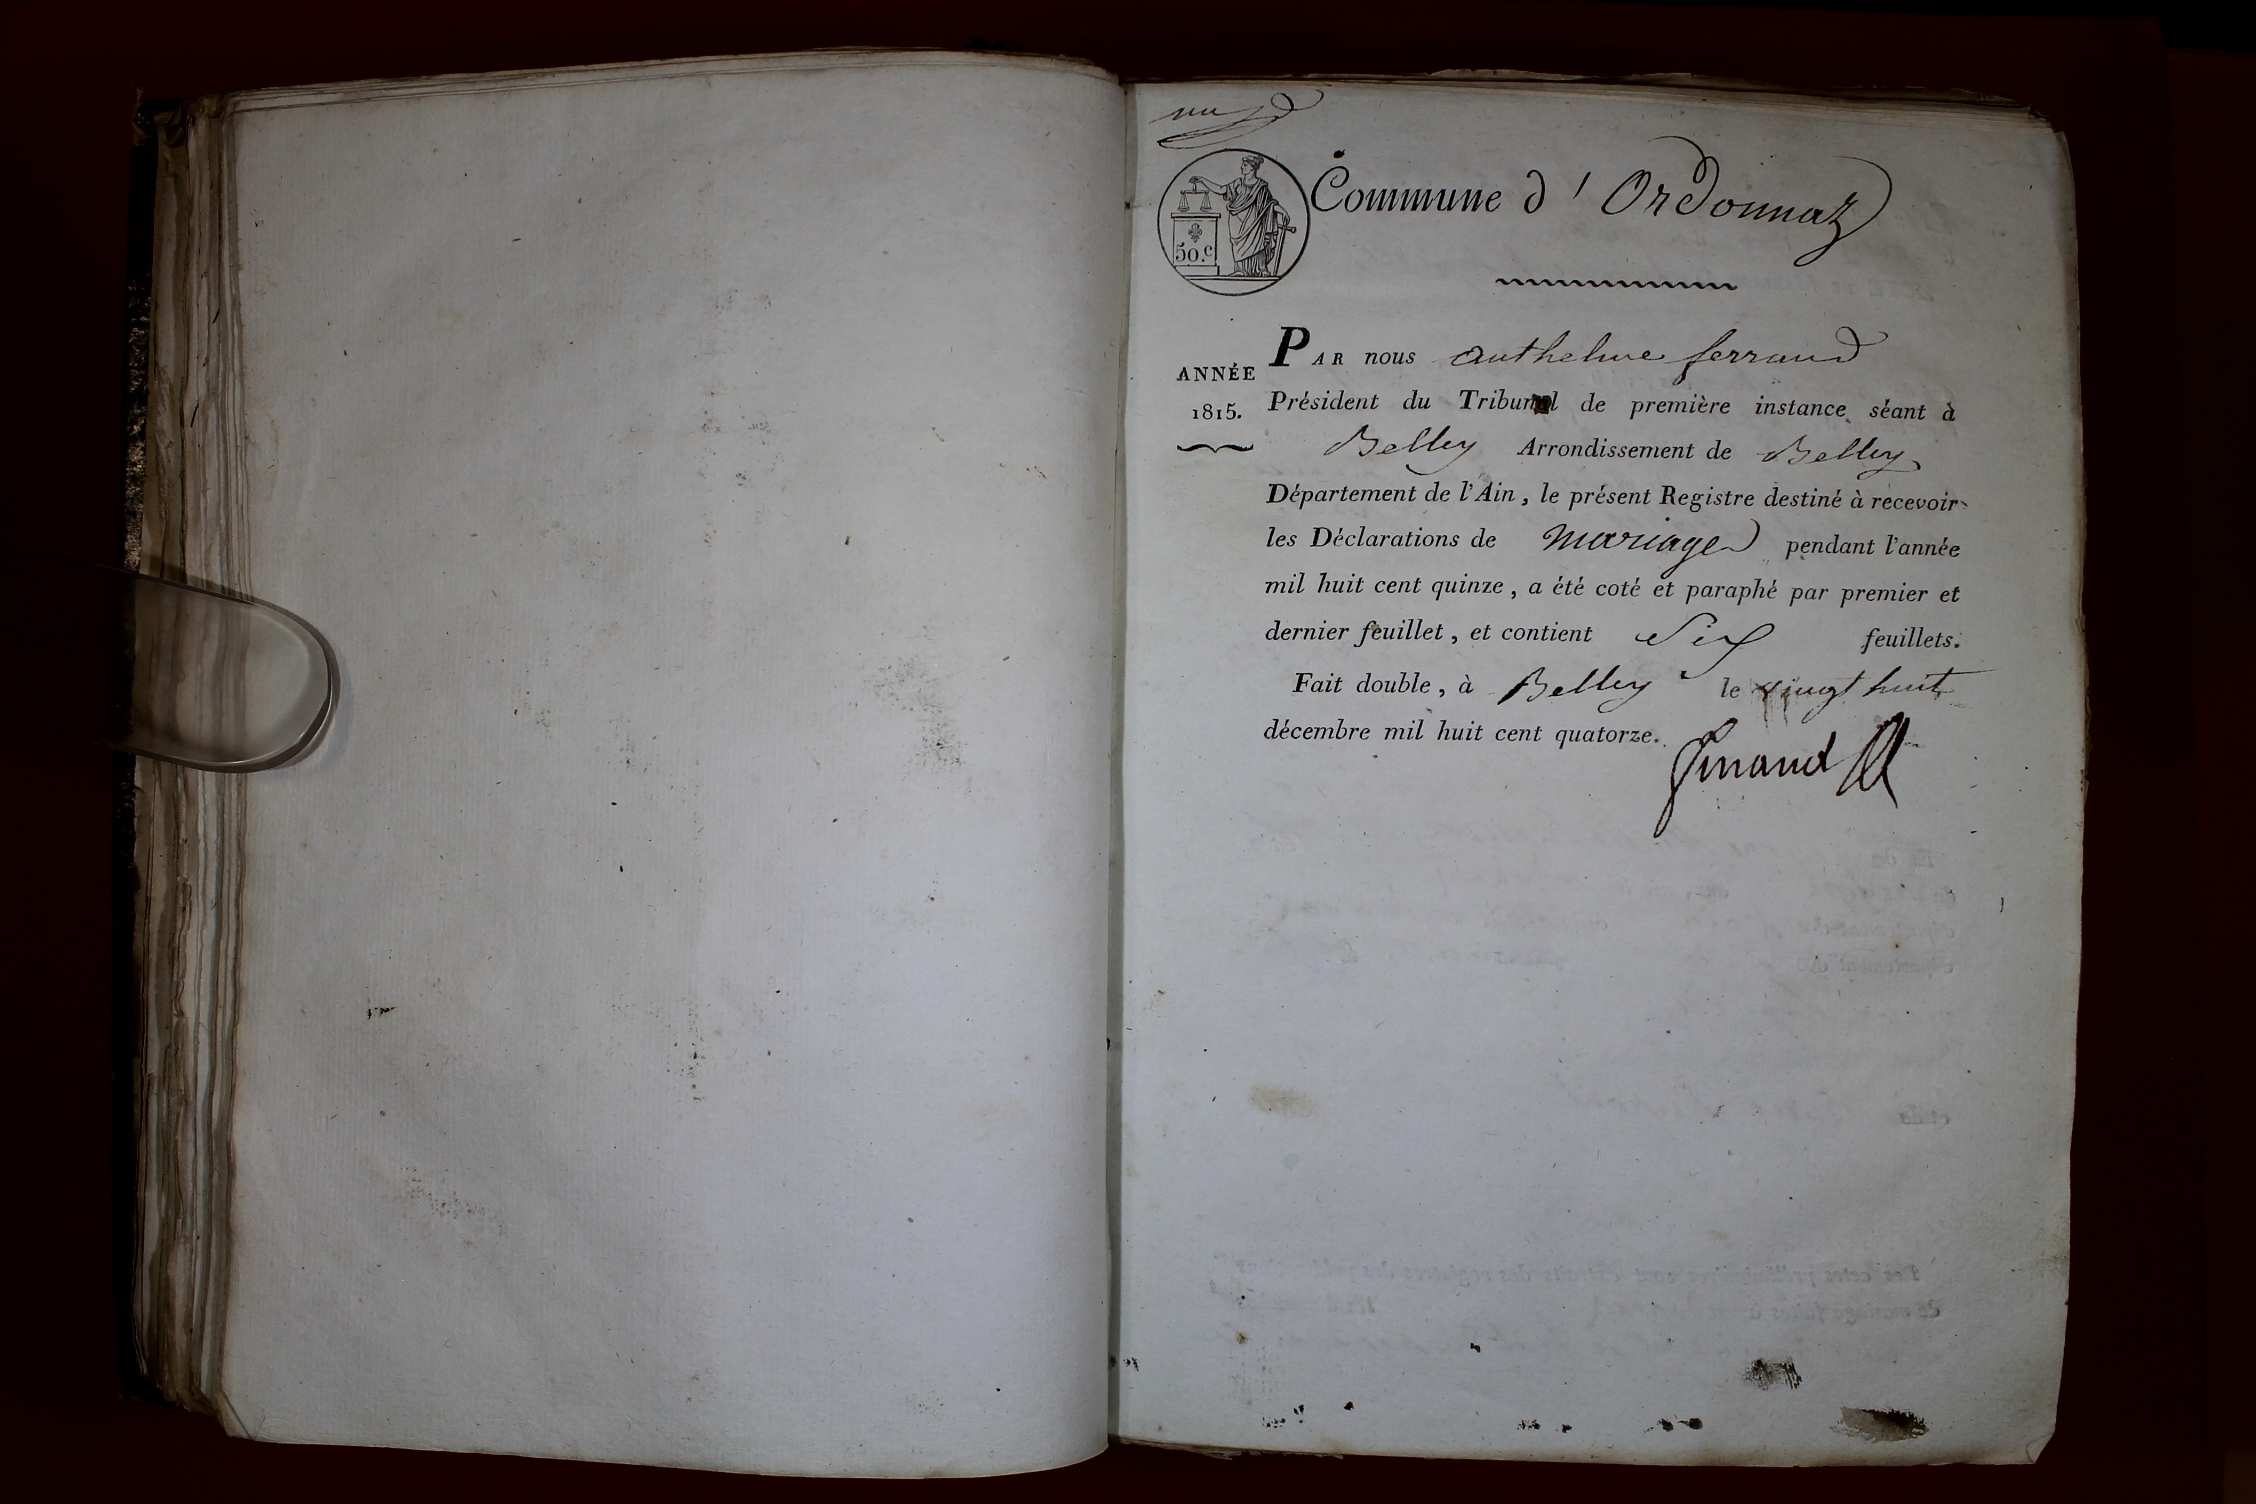 Commune d'Ordonnaz
50.c
PAR nous anthelme ferrand
ANNÉE
1815.
Président du Tribunal de première instance séant à
Belley Arrondissement de Belley
Département de l'Ain, le présent Registre destiné à recevoir
les Déclarations de mariage pendant l'année
mil huit cent quinze, a été coté et paraphé par premier et
dernier feuillet, et contient Six feuillets.
Fait double, à Belley le vingt huit
décembre mil huit cent quatorze.